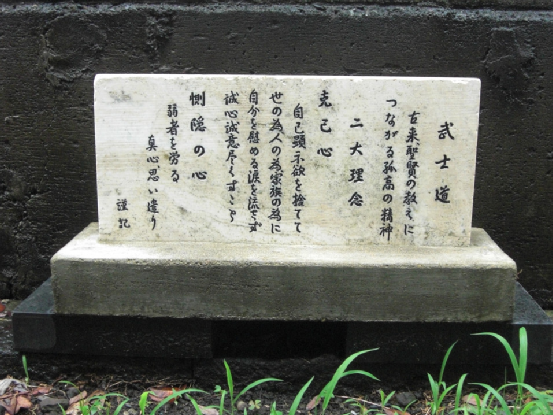 武士道
古来聖賢の教えに
つながる孤高の精神
二大理念
克己心
自己顕示欲を捨てて
世の為人の為家族の為に
自分を慰める涙を流さず
誠心誠意尽くすこころ
惻隠の心
弱者を労る
真心思い遣り
謹記